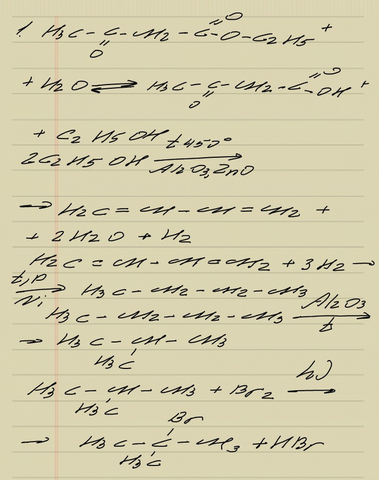 1. H3C-C-CH2-C-O-C2H5 +
O
O
+ H2O ⇌ H3C-C-CH2-C-OH +
O
O
+ C2H5OH
2C2H5OH t 450° Al2O3, ZnO →
→ H2C=CH-CH=CH2 +
+ 2H2O + H2
H2C=CH-CH=CH2 + 3H2 →
t,p Ni → H3C-CH2-CH2-CH3
H3C-CH2-CH2-CH3 Al2O3 t →
→ H3C-CH-CH3
H3C
H3C-CH-CH3 + Br2 hν →
H3C
Br
→ H3C-C-CH3 + HBr
H3C